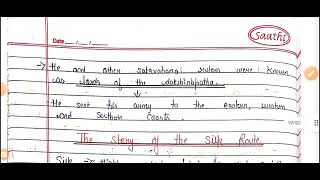 Saathi
Date __/__/__
→ He and other satavahana rulers were known
as lords of the dakshinapatha.
↓
→ He sent his army to the eastern, western
and southern coasts.
The story of the Silk Route
Silk →